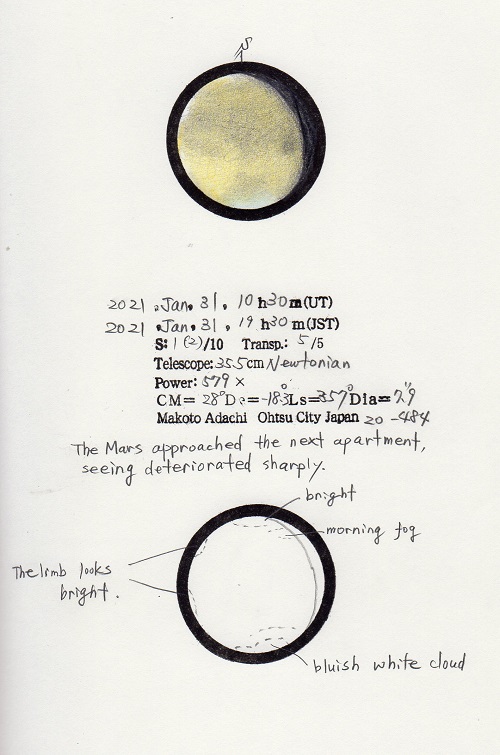 S
2021 .Jan. 31. 10 h30 m(UT)
2021 .Jan. 31. 19 h30 m(JST)
S: 1 (2)/10 Transp.: 5/5
Telescope: 35.5cm Newtonian
Power: 579 ×
CM= 28°De=-18.3°Ls=357°Dia=7.9"
Makoto Adachi Ohtsu City Japan 20 -484
The Mars approached the next apartment,
seeing deteriorated sharply.
bright
morning fog
The limb looks
bright.
bluish white cloud